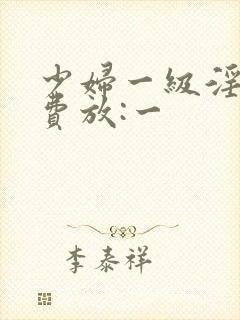 少婦一級淫
費放:一
李泰祥